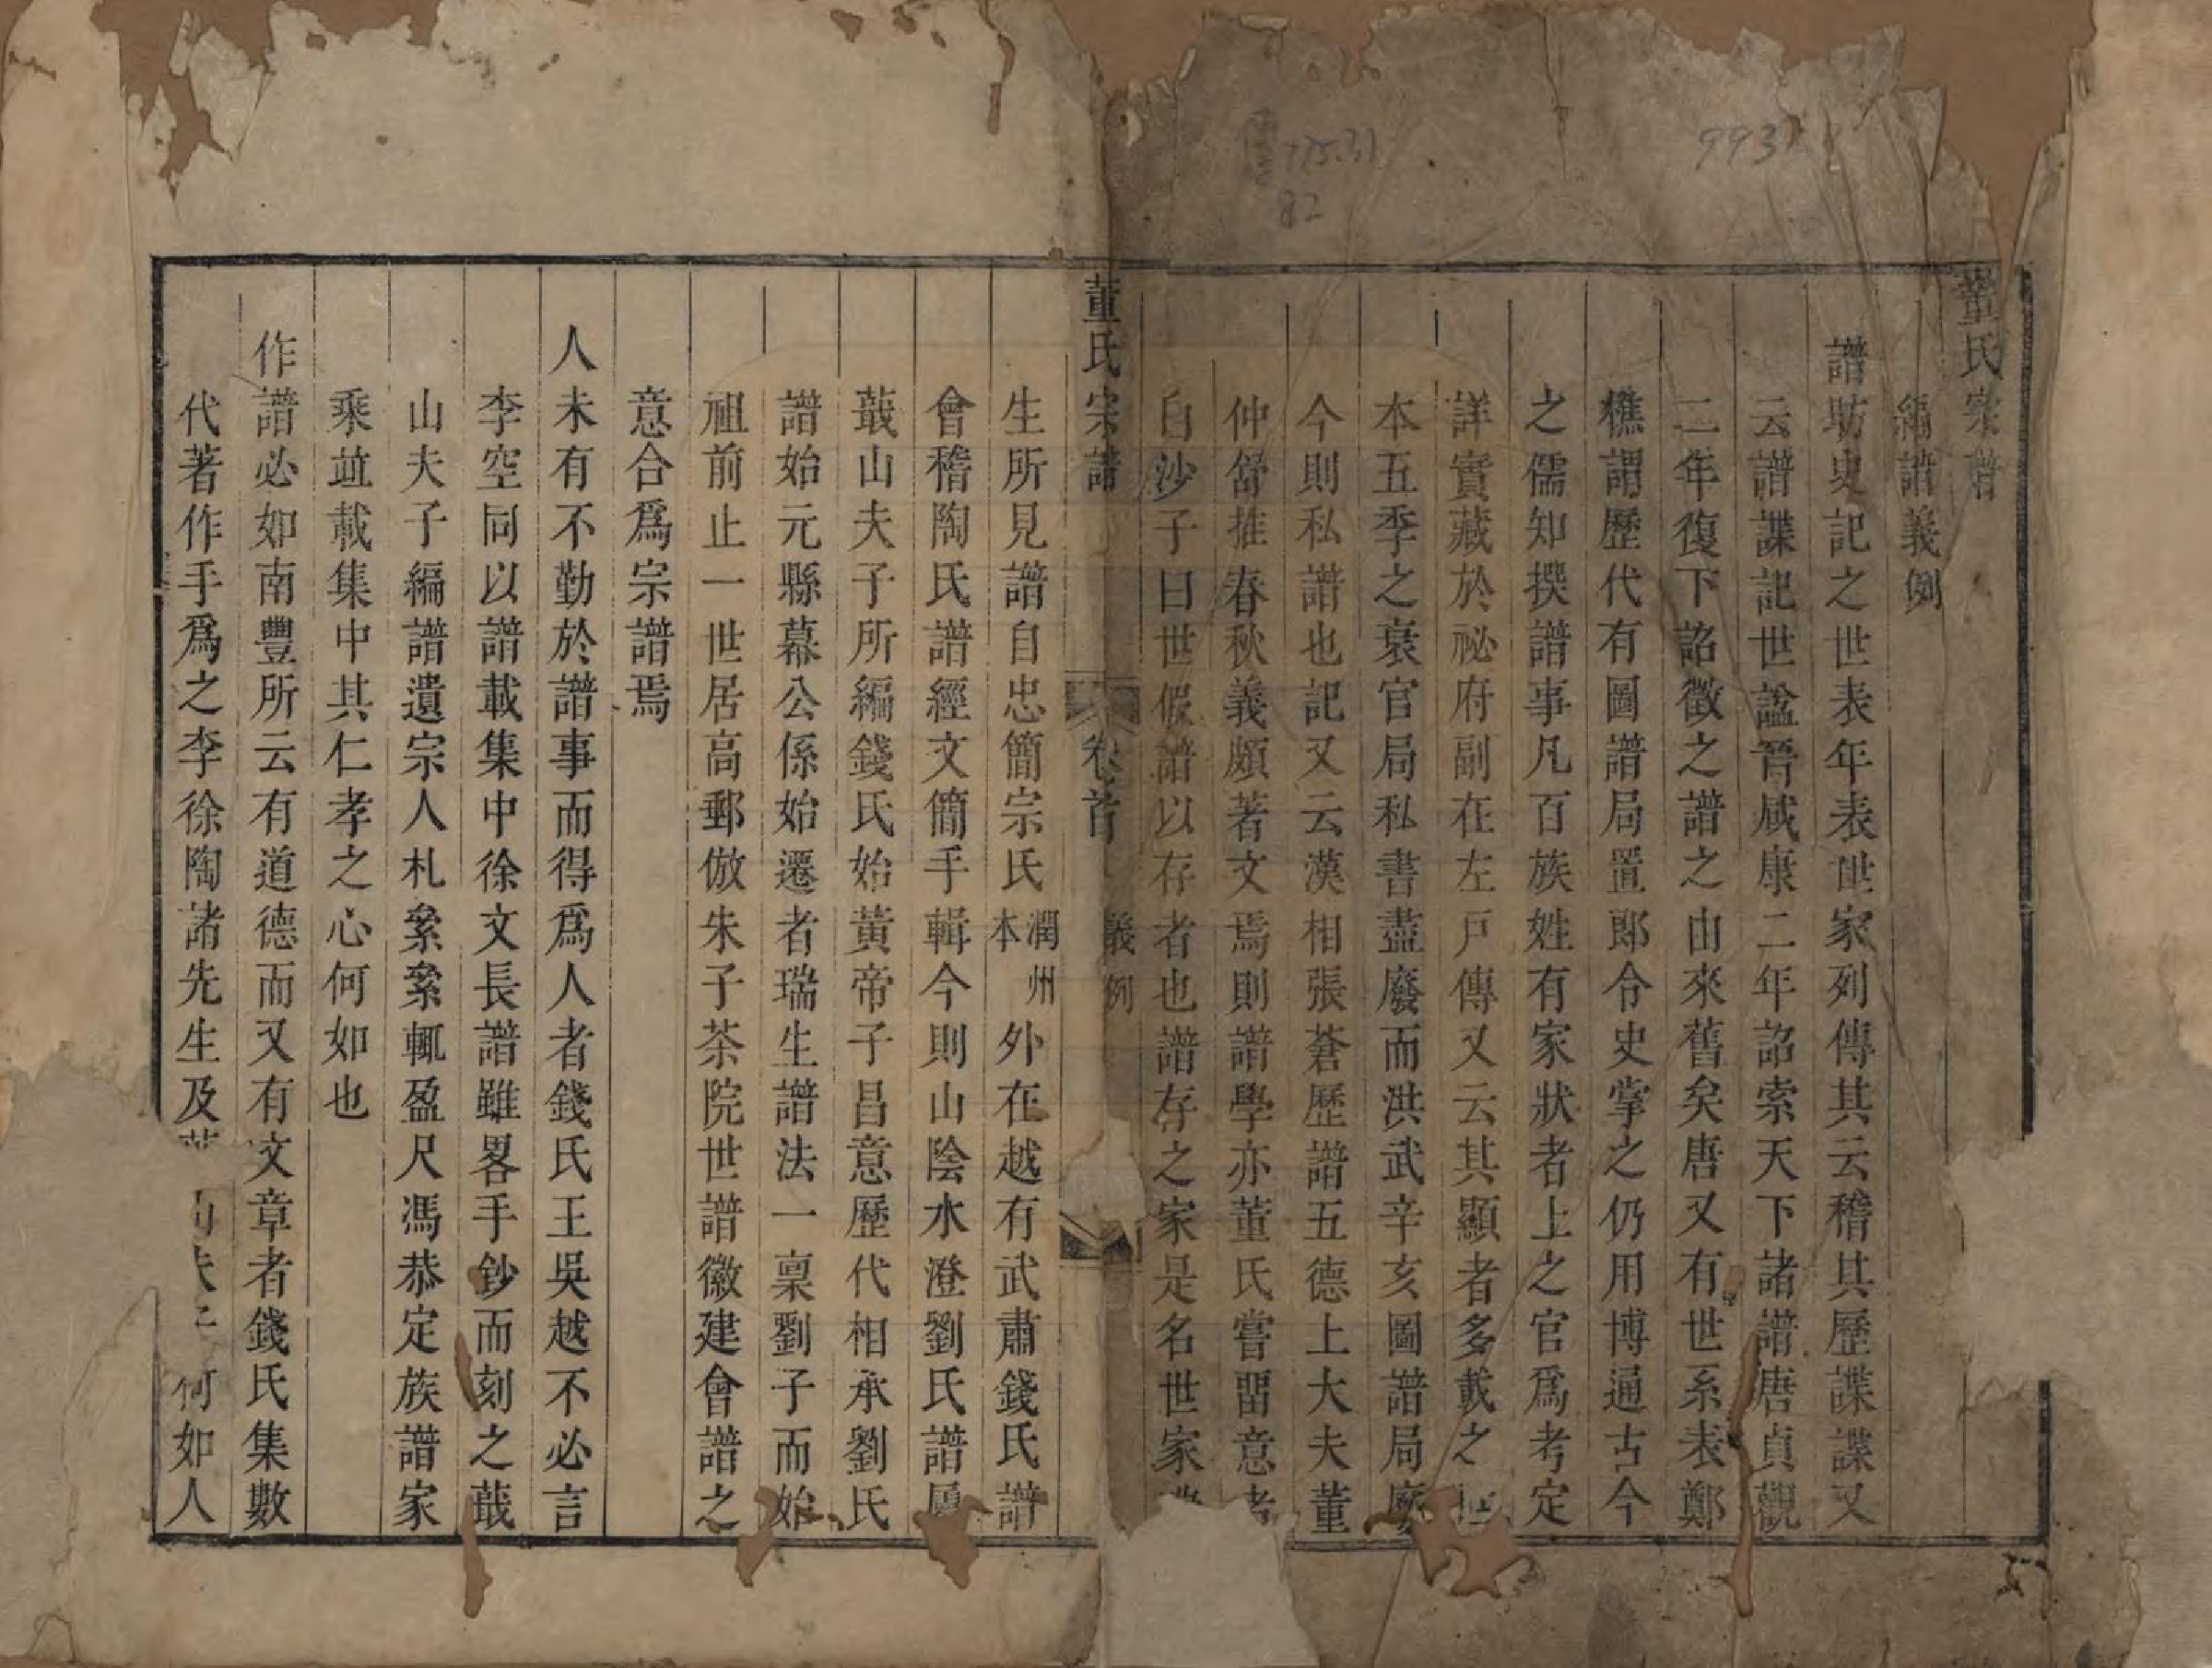 董氏宗譜
編譜義例
譜昉史記之世表年表世家列傳其云稽其歷諜諜又
云譜諜記世諡晉咸康二年詔索天下諸譜唐貞觀
二年復下詔徵之譜之由來舊矣唐又有世系表鄭
樵謂歷代有圖譜局置郎令史掌之仍用博通古今
之儒知撰譜事凡百族姓有家狀者上之官爲考定
詳實藏於祕府副在左戸傳又云其顯者多載之
本五季之衰官局私書盡廢而洪武辛亥圖譜局廢
今則私譜也記又云漢相張蒼歷譜五德上大夫董
仲舒推春秋義頗著文焉則譜學亦董氏嘗留意者
白沙子曰世假譜以存者也譜存之家是名世家
董氏宗譜 卷首 義例
生所見譜自忠簡宗氏潤州本外在越有武肅錢氏譜
會稽陶氏譜經文簡手輯今則山陰水澄劉氏譜屬
蕺山夫子所編錢氏始黃帝子昌意歷代相承劉氏
譜始元縣幕公係始遷者瑞生譜法一稟劉子而始
祖前止一世居高郵倣朱子茶院世譜徽建會譜之
意合爲宗譜焉
人未有不勤於譜事而得爲人者錢氏王吳越不必言
李空同以譜載集中徐文長譜雖畧手鈔而刻之蕺
山夫子編譜遺宗人札纍纍輒盈尺馮恭定族譜家
乘竝載集中其仁孝之心何如也
作譜必如南豐所云有道德而又有文章者錢氏集數
代著作手爲之李徐陶諸先生及蕺山夫子何如人